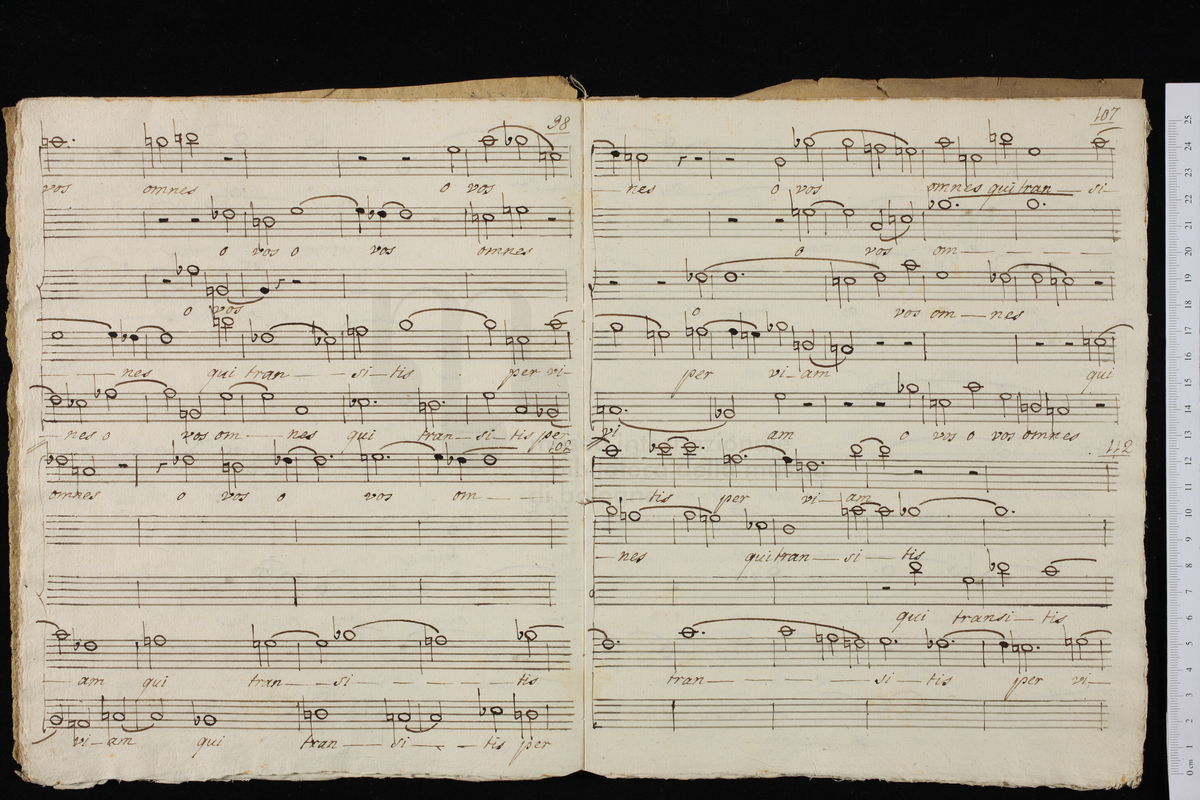 98
vos omnes o vos
o vos o vos omnes
o vos
nes qui tran — si — tis per vi —
— nes o vos om — nes qui tran — si — tis per
102
omnes o vos o vos om — —
— am qui tran — — si — — — — tis
vi — am qui tran — si — — tis per
107
— nes o vos omnes qui tran — si
o vos om — — — —
o vos om — nes
per vi — am qui
vi am o vos o vos omnes
112
— tis per vi — am
— nes qui tran — si — tis
qui transi — tis
tran — — — — si — tis per vi —